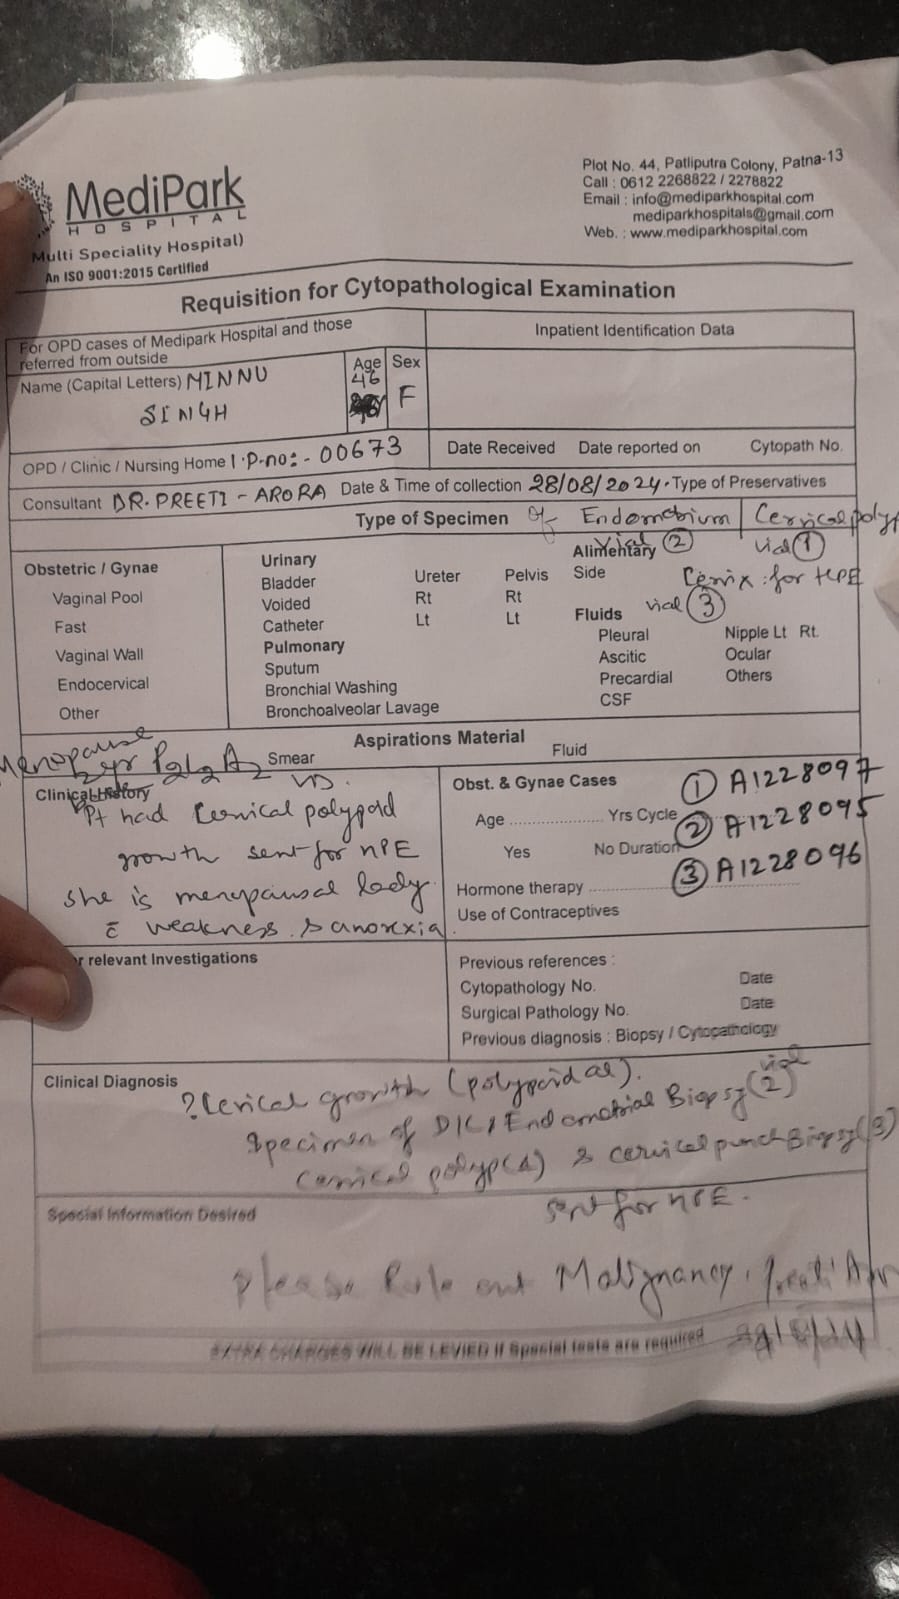 MediPark
HOSPITAL
Multi Speciality Hospital)
An ISO 9001:2015 Certified
Plot No. 44, Patliputra Colony, Patna-13
Call : 0612 2268822 / 2278822
Email : info@mediparkhospital.com
mediparkhospitals@gmail.com
Web. : www.mediparkhospital.com
Requisition for Cytopathological Examination
For OPD cases of Medipark Hospital and those
referred from outside
Inpatient Identification Data
Name (Capital Letters) MINNU
SINGH
Age Sex
46
F
OPD / Clinic / Nursing Home I.P-no:- 00673
Date Received Date reported on Cytopath No.
Consultant DR. PREETI - ARORA Date & Time of collection 28/08/2024. Type of Preservatives
Type of Specimen Of Endometrium Cervical polyp
Vial (2) vial (1)
Cervix: for HPE
vial (3)
Obstetric / Gynae
Vaginal Pool
Fast
Vaginal Wall
Endocervical
Other
Urinary
Bladder Ureter Pelvis
Voided Rt Rt
Catheter Lt Lt
Pulmonary
Sputum
Bronchial Washing
Bronchoalveolar Lavage
Alimentary
Side
Fluids
Pleural Nipple Lt Rt.
Ascitic Ocular
Precardial Others
CSF
Aspirations Material
Smear Fluid
Menopause
2yr P2L2A2
Clinical History
Pt had Cervical polypoid
growth sent for HPE
she is menopausal lady
c̄ weakness & anorexia.
Obst. & Gynae Cases
Age .................... Yrs Cycle
Yes No Duration
Hormone therapy
Use of Contraceptives
(1) A1228097
(2) A1228095
(3) A1228096
r relevant Investigations
Previous references :
Cytopathology No. Date
Surgical Pathology No. Date
Previous diagnosis : Biopsy / Cytopathology
Clinical Diagnosis
? Cervical growth (polypoidal).
Specimen of D/C, Endometrial Biopsy (2) vial
Cervical polyp (1) & cervical punch Biopsy (3)
sent for HPE.
Special Information Desired
Please Rule out Malignancy.
EXTRA CHARGES WILL BE LEVIED If Special tests are required